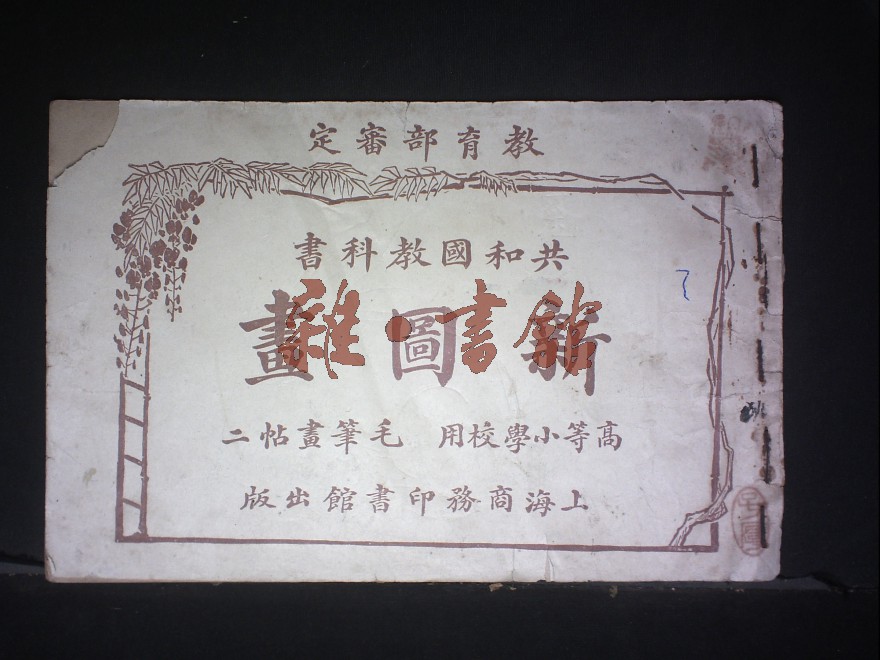 教育部審定
共和國教科書
新圖畫
雜·書館
高等小學校用 毛筆畫帖二
上海商務印書館出版